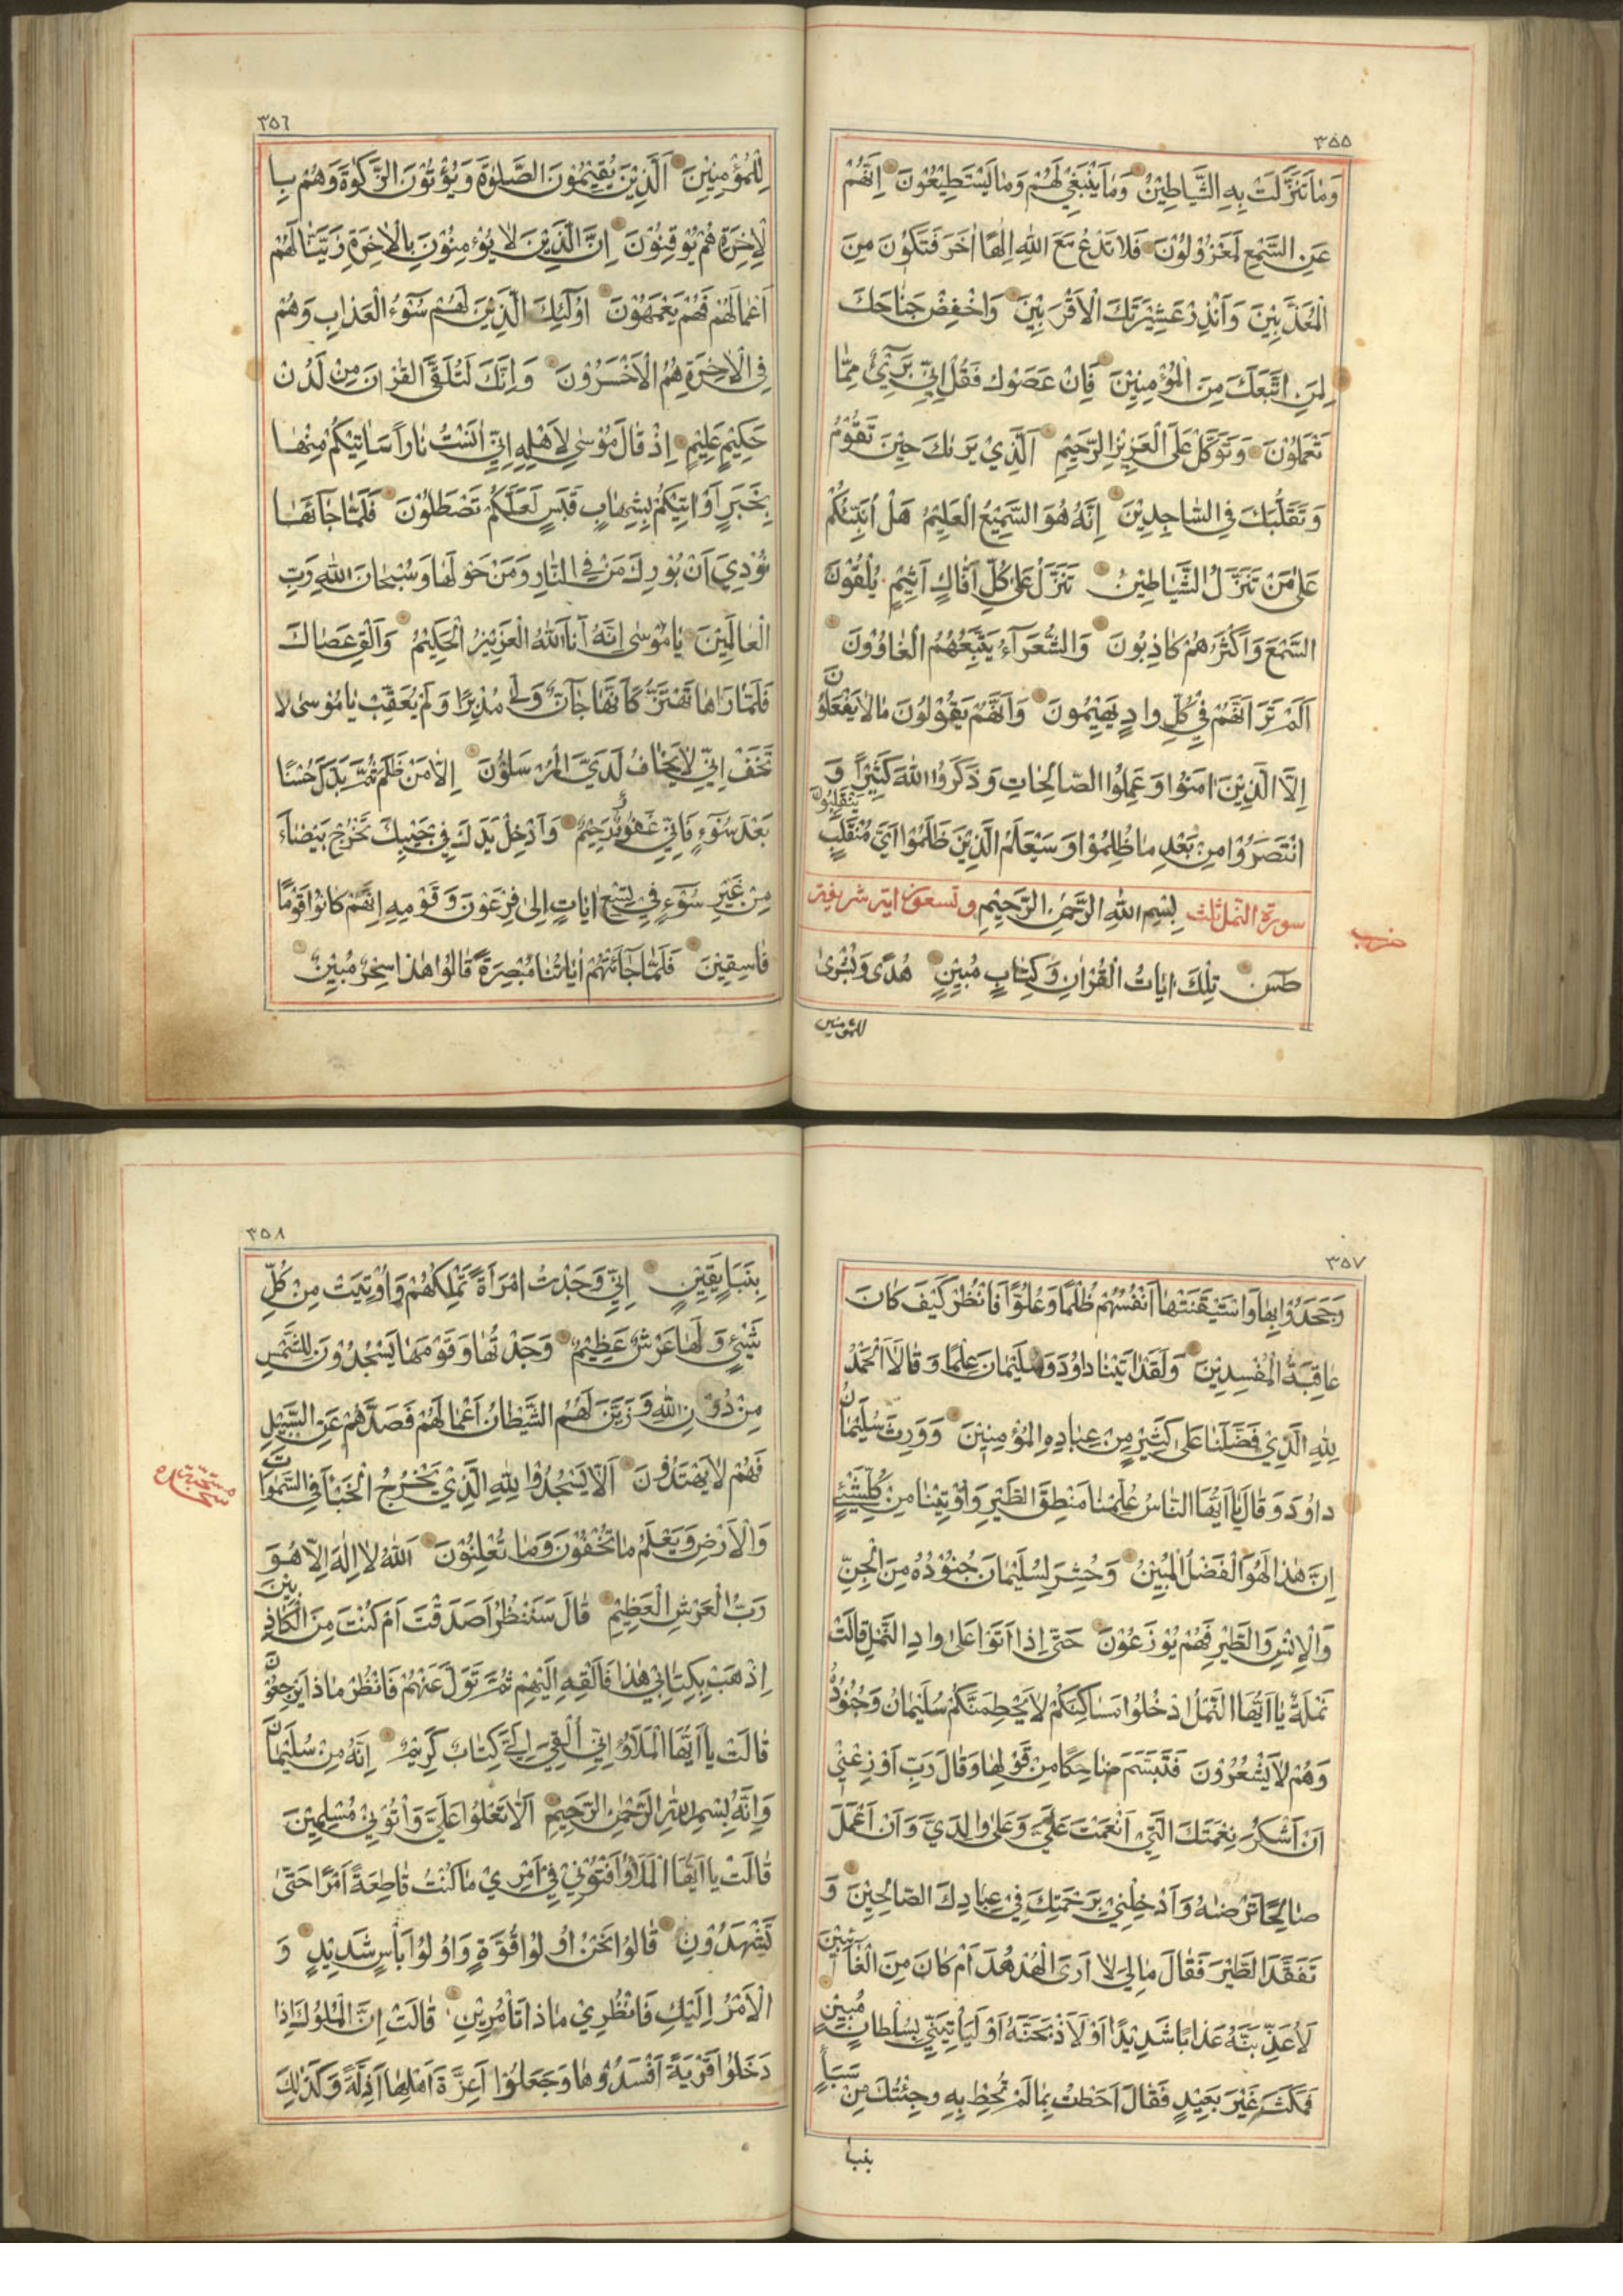 ٣٥٥
وَمٰا تَنَزَّلَتْ بِهِ الشَّيَاطِيْنُ وَمٰا يَنْبَغِيْ لَهُمْ وَمٰا يَسْتَطِيْعُوْنَ اِنَّهُمْ
عَنِ السَّمْعِ لَمَعْزُوْلُوْنَ فَلٰا تَدْعُ مَعَ اللهِ اِلٰهًا اٰخَرَ فَتَكُوْنَ مِنَ
الْمُعَذَّبِيْنَ وَاَنْذِرْ عَشِيْرَتَكَ الْاَقْرَبِيْنَ وَاخْفِضْ جَنٰاحَكَ
لِمَنِ اتَّبَعَكَ مِنَ الْمُؤْمِنِيْنَ فَاِنْ عَصَوْكَ فَقُلْ اِنِّيْ بَرَيْٓئٌ مِمّٰا
تَعْمَلُوْنَ وَتَوَكَّلْ عَلَى الْعَزِيْزِ الرَّحِيْمِ اَلَّذِيْ يَرٰىكَ حِيْنَ تَقُوْمُ
وَتَقَلُّبَكَ فِي السّٰاجِدِيْنَ اِنَّهُ هُوَ السَّمِيْعُ الْعَلِيْمُ هَلْ اُنَبِّئُكُمْ
عَلٰى مَنْ تَنَزَّلُ الشَّيٰاطِيْنُ تَنَزَّلُ عَلٰى كُلِّ اَفّٰاكٍ اَثِيْمٍ يُلْقُوْنَ
السَّمْعَ وَاَكْثَرُهُمْ كٰاذِبُونَ وَالشُّعَرَآءُ يَتَّبِعُهُمُ الْغٰاوُوْنَ
اَلَمْ تَرَ اَنَّهُمْ فِيْ كُلِّ وٰادٍ يَهِيْمُونَ وَاَنَّهُمْ يَقُوْلُوْنَ مٰا لٰا يَفْعَلُوْنَ
اِلَّا الَّذِيْنَ اٰمَنُوْا وَعَمِلُوا الصّٰالِحٰاتِ وَذَكَرُوا اللهَ كَثِيْرًا وَ
انْتَصَرُوْا مِنْ بَعْدِ مٰا ظُلِمُوْا وَسَيَعْلَمُ الَّذِيْنَ ظَلَمُوْا اَيَّ مُنْقَلَبٍ يَنْقَلِبُوْنَ
سورة النمل ثلث بِسْمِ اللهِ الرَّحْمٰنِ الرَّحِيْمِ وتسعون اية شريفة
حزب
طٰسٓ تِلْكَ اٰيٰاتُ الْقُرْاٰنِ وَكِتٰابٍ مُبِيْنٍ هُدًى وَبُشْرٰى
للمؤمنين
٣٥٦
لِلْمُؤْمِنِيْنَ اَلَّذِيْنَ يُقِيْمُوْنَ الصَّلٰوةَ وَيُؤْتُوْنَ الزَّكٰوةَ وَهُمْ بِا
لْاٰخِرَةِ هُمْ يُوْقِنُوْنَ اِنَّ الَّذِيْنَ لٰا يُؤْمِنُوْنَ بِالْاٰخِرَةِ زَيَّنّٰا لَهُمْ
اَعْمٰالَهُمْ فَهُمْ يَعْمَهُوْنَ اُولٰٓئِكَ الَّذِيْنَ لَهُمْ سُوْٓءُ الْعَذٰابِ وَهُمْ
فِي الْاٰخِرَةِ هُمُ الْاَخْسَرُوْنَ وَاِنَّكَ لَتُلَقَّى الْقُرْاٰنَ مِنْ لَدُنْ
حَكِيْمٍ عَلِيْمٍ اِذْ قَالَ مُوْسٰى لِاَهْلِهِ اِنِّيْ اٰنَسْتُ نٰارًا سَاٰتِيْكُمْ مِنْهٰا
بِخَبَرٍ اَوْ اٰتِيْكُمْ بِشِهٰابٍ قَبَسٍ لَعَلَّكُمْ تَصْطَلُوْنَ فَلَمّٰا جٰآئَهٰا
نُوْدِيَ اَنْ بُوْرِكَ مَنْ فِي النّٰارِ وَمَنْ حَوْلَهٰا وَسُبْحٰانَ اللهِ رَبِّ
الْعٰالَمِيْنَ يٰا مُوْسٰى اِنَّهُ اَنَا اللهُ الْعَزِيْزُ الْحَكِيْمُ وَاَلْقِ عَصٰاكَ
فَلَمّٰا رَاٰهٰا تَهْتَزُّ كَاَنَّهٰا جٰآنٌّ وَلّٰى مُدْبِرًا وَلَمْ يُعَقِّبْ يٰا مُوْسٰى لٰا
تَخَفْ اِنِّيْ لٰا يَخٰافُ لَدَيَّ الْمُرْسَلُوْنَ اِلّٰا مَنْ ظَلَمَ ثُمَّ بَدَّلَ حُسْنًا
بَعْدَ سُوْٓءٍ فَاِنِّيْ غَفُوْرٌ رَحِيْمٌ وَاَدْخِلْ يَدَكَ فِيْ جَيْبِكَ تَخْرُجْ بَيْضٰآءَ
مِنْ غَيْرِ سُوْٓءٍ فِيْ تِسْعِ اٰيٰاتٍ اِلٰى فِرْعَوْنَ وَقَوْمِهِ اِنَّهُمْ كٰانُوْا قَوْمًا
فٰاسِقِيْنَ فَلَمّٰا جٰآئَتْهُمْ اٰيٰاتُنٰا مُبْصِرَةً قٰالُوْا هٰذٰا سِحْرٌ مُبِيْنٌ
٣٥٧
وَجَحَدُوْا بِهٰا وَاسْتَيْقَنَتْهٰا اَنْفُسُهُمْ ظُلْمًا وَعُلُوًّا فَانْظُرْ كَيْفَ كٰانَ
عٰاقِبَةُ الْمُفْسِدِيْنَ وَلَقَدْ اٰتَيْنٰا دٰاوُدَ وَسُلَيْمٰانَ عِلْمًا وَقٰالَا الْحَمْدُ
لِلّٰهِ الَّذِيْ فَضَّلَنٰا عَلٰى كَثِيْرٍ مِنْ عِبٰادِهِ الْمُؤْمِنِيْنَ وَوَرِثَ سُلَيْمٰانُ
دٰاوُدَ وَقٰالَ يٰا اَيُّهَا النّٰاسُ عُلِّمْنٰا مَنْطِقَ الطَّيْرِ وَاُوْتِيْنٰا مِنْ كُلِّ شَيْئٍ
اِنَّ هٰذٰا لَهُوَ الْفَضْلُ الْمُبِيْنُ وَحُشِرَ لِسُلَيْمٰانَ جُنُوْدُهُ مِنَ الْجِنِّ
وَالْاِنْسِ وَالطَّيْرِ فَهُمْ يُوْزَعُوْنَ حَتّٰى اِذٰا اَتَوْا عَلٰى وٰادِ النَّمْلِ قٰالَتْ
نَمْلَةٌ يٰا اَيُّهَا النَّمْلُ ادْخُلُوْا مَسٰاكِنَكُمْ لٰا يَحْطِمَنَّكُمْ سُلَيْمٰانُ وَجُنُوْدُهُ
وَهُمْ لٰا يَشْعُرُوْنَ فَتَبَسَّمَ ضٰاحِكًا مِنْ قَوْلِهٰا وَقٰالَ رَبِّ اَوْزِعْنِيْ
اَنْ اَشْكُرَ نِعْمَتَكَ الَّتِيْ اَنْعَمْتَ عَلَيَّ وَعَلٰى وٰالِدَيَّ وَاَنْ اَعْمَلَ
صٰالِحًا تَرْضٰىهُ وَاَدْخِلْنِيْ بِرَحْمَتِكَ فِيْ عِبٰادِكَ الصّٰالِحِيْنَ وَ
تَفَقَّدَ الطَّيْرَ فَقٰالَ مٰالِيَ لٰا اَرَى الْهُدْهُدَ اَمْ كٰانَ مِنَ الْغٰآئِبِيْنَ
لَاُعَذِّبَنَّهُ عَذٰابًا شَدِيْدًا اَوْ لَاَذْبَحَنَّهُ اَوْ لَيَأْتِيَنِّيْ بِسُلْطٰانٍ مُبِيْنٍ
فَمَكَثَ غَيْرَ بَعِيْدٍ فَقٰالَ اَحَطْتُ بِمٰا لَمْ تُحِطْ بِهِ وَجِئْتُكَ مِنْ سَبَاٍ
بنبا
٣٥٨
بِنَبَاٍ يَقِيْنٍ اِنِّيْ وَجَدْتُ امْرَاَةً تَمْلِكُهُمْ وَاُوْتِيَتْ مِنْ كُلِّ
شَيْئٍ وَلَهٰا عَرْشٌ عَظِيْمٌ وَجَدْتُهٰا وَقَوْمَهٰا يَسْجُدُوْنَ لِلشَّمْسِ
مِنْ دُوْنِ اللهِ وَزَيَّنَ لَهُمُ الشَّيْطٰانُ اَعْمٰالَهُمْ فَصَدَّهُمْ عَنِ السَّبِيْلِ
فَهُمْ لٰا يَهْتَدُوْنَ اَلّٰا يَسْجُدُوْا لِلّٰهِ الَّذِيْ يُخْرِجُ الْخَبْأَ فِي السَّمٰوَاتِ
وَالْاَرْضِ وَيَعْلَمُ مٰا تُخْفُوْنَ وَمٰا تُعْلِنُوْنَ اَللهُ لٰا اِلٰهَ اِلّٰا هُوَ
رَبُّ الْعَرْشِ الْعَظِيْمِ قٰالَ سَنَنْظُرُ اَصَدَقْتَ اَمْ كُنْتَ مِنَ الْكٰاذِبِيْنَ
اِذْهَبْ بِكِتٰابِيْ هٰذٰا فَاَلْقِهِ اِلَيْهِمْ ثُمَّ تَوَلَّ عَنْهُمْ فَانْظُرْ مٰاذٰا يَرْجِعُوْنَ
قٰالَتْ يٰا اَيُّهَا الْمَلَاُ اِنِّيْ اُلْقِيَ اِلَيَّ كِتٰابٌ كَرِيْمٌ اِنَّهُ مِنْ سُلَيْمٰانَ
وَاِنَّهُ بِسْمِ اللهِ الرَّحْمٰنِ الرَّحِيْمِ اَلّٰا تَعْلُوْا عَلَيَّ وَأْتُوْنِيْ مُسْلِمِيْنَ
قٰالَتْ يٰا اَيُّهَا الْمَلَاُ اَفْتُوْنِيْ فِيْ اَمْرِيْ مٰا كُنْتُ قٰاطِعَةً اَمْرًا حَتّٰى
تَشْهَدُوْنِ قٰالُوْا نَحْنُ اُولُوْا قُوَّةٍ وَاُولُوْا بَأْسٍ شَدِيْدٍ وَ
الْاَمْرُ اِلَيْكِ فَانْظُرِيْ مٰاذٰا تَأْمُرِيْنَ قٰالَتْ اِنَّ الْمُلُوْكَ اِذٰا
دَخَلُوْا قَرْيَةً اَفْسَدُوْهٰا وَجَعَلُوْا اَعِزَّةَ اَهْلِهٰا اَذِلَّةً وَكَذٰلِكَ